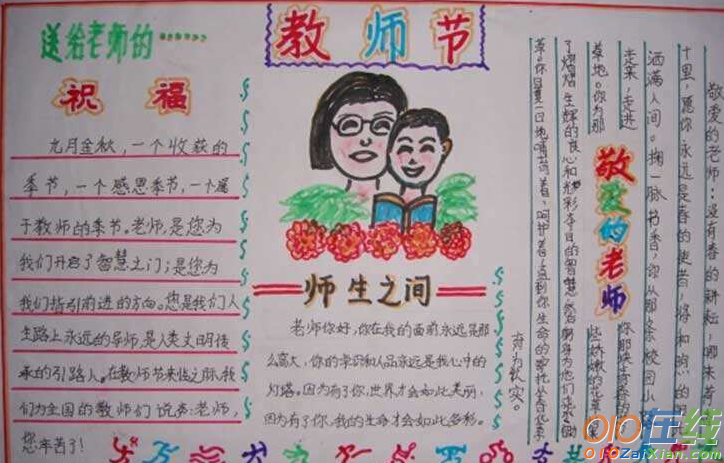 送给老师的……
祝福
九月金秋，一个收获的
季节，一个感恩季节，一个属
于教师的季节。老师，是您为
我们开启了智慧之门；是您为
我们指引前进的方向。您是我们人
生路上永远的导师，是人类文明传
承的引路人。在教师节来临之际，我
们为全国的教师们说声：老师，
您辛苦了！
教师节
师生之间
老师你好，你在我的面前永远是那
么高大，你的学识和人品永远是我心中的
灯塔。因为有了你，世界才会如此美丽，
因为有了你，我的生命才会如此多彩。
敬爱的老师
敬爱的老师：没有春的耕耘，哪来
十里，愿你永远是春的使者，将和煦的
洒满人间。掬一脉书香，你从那条校园小
走来，走进
草地。你为那
些娇嫩的花草
了熠熠生辉的良心和光彩夺目的智慧
草。你日复一日地
有为长实。
910在线
910ZaiXian.com